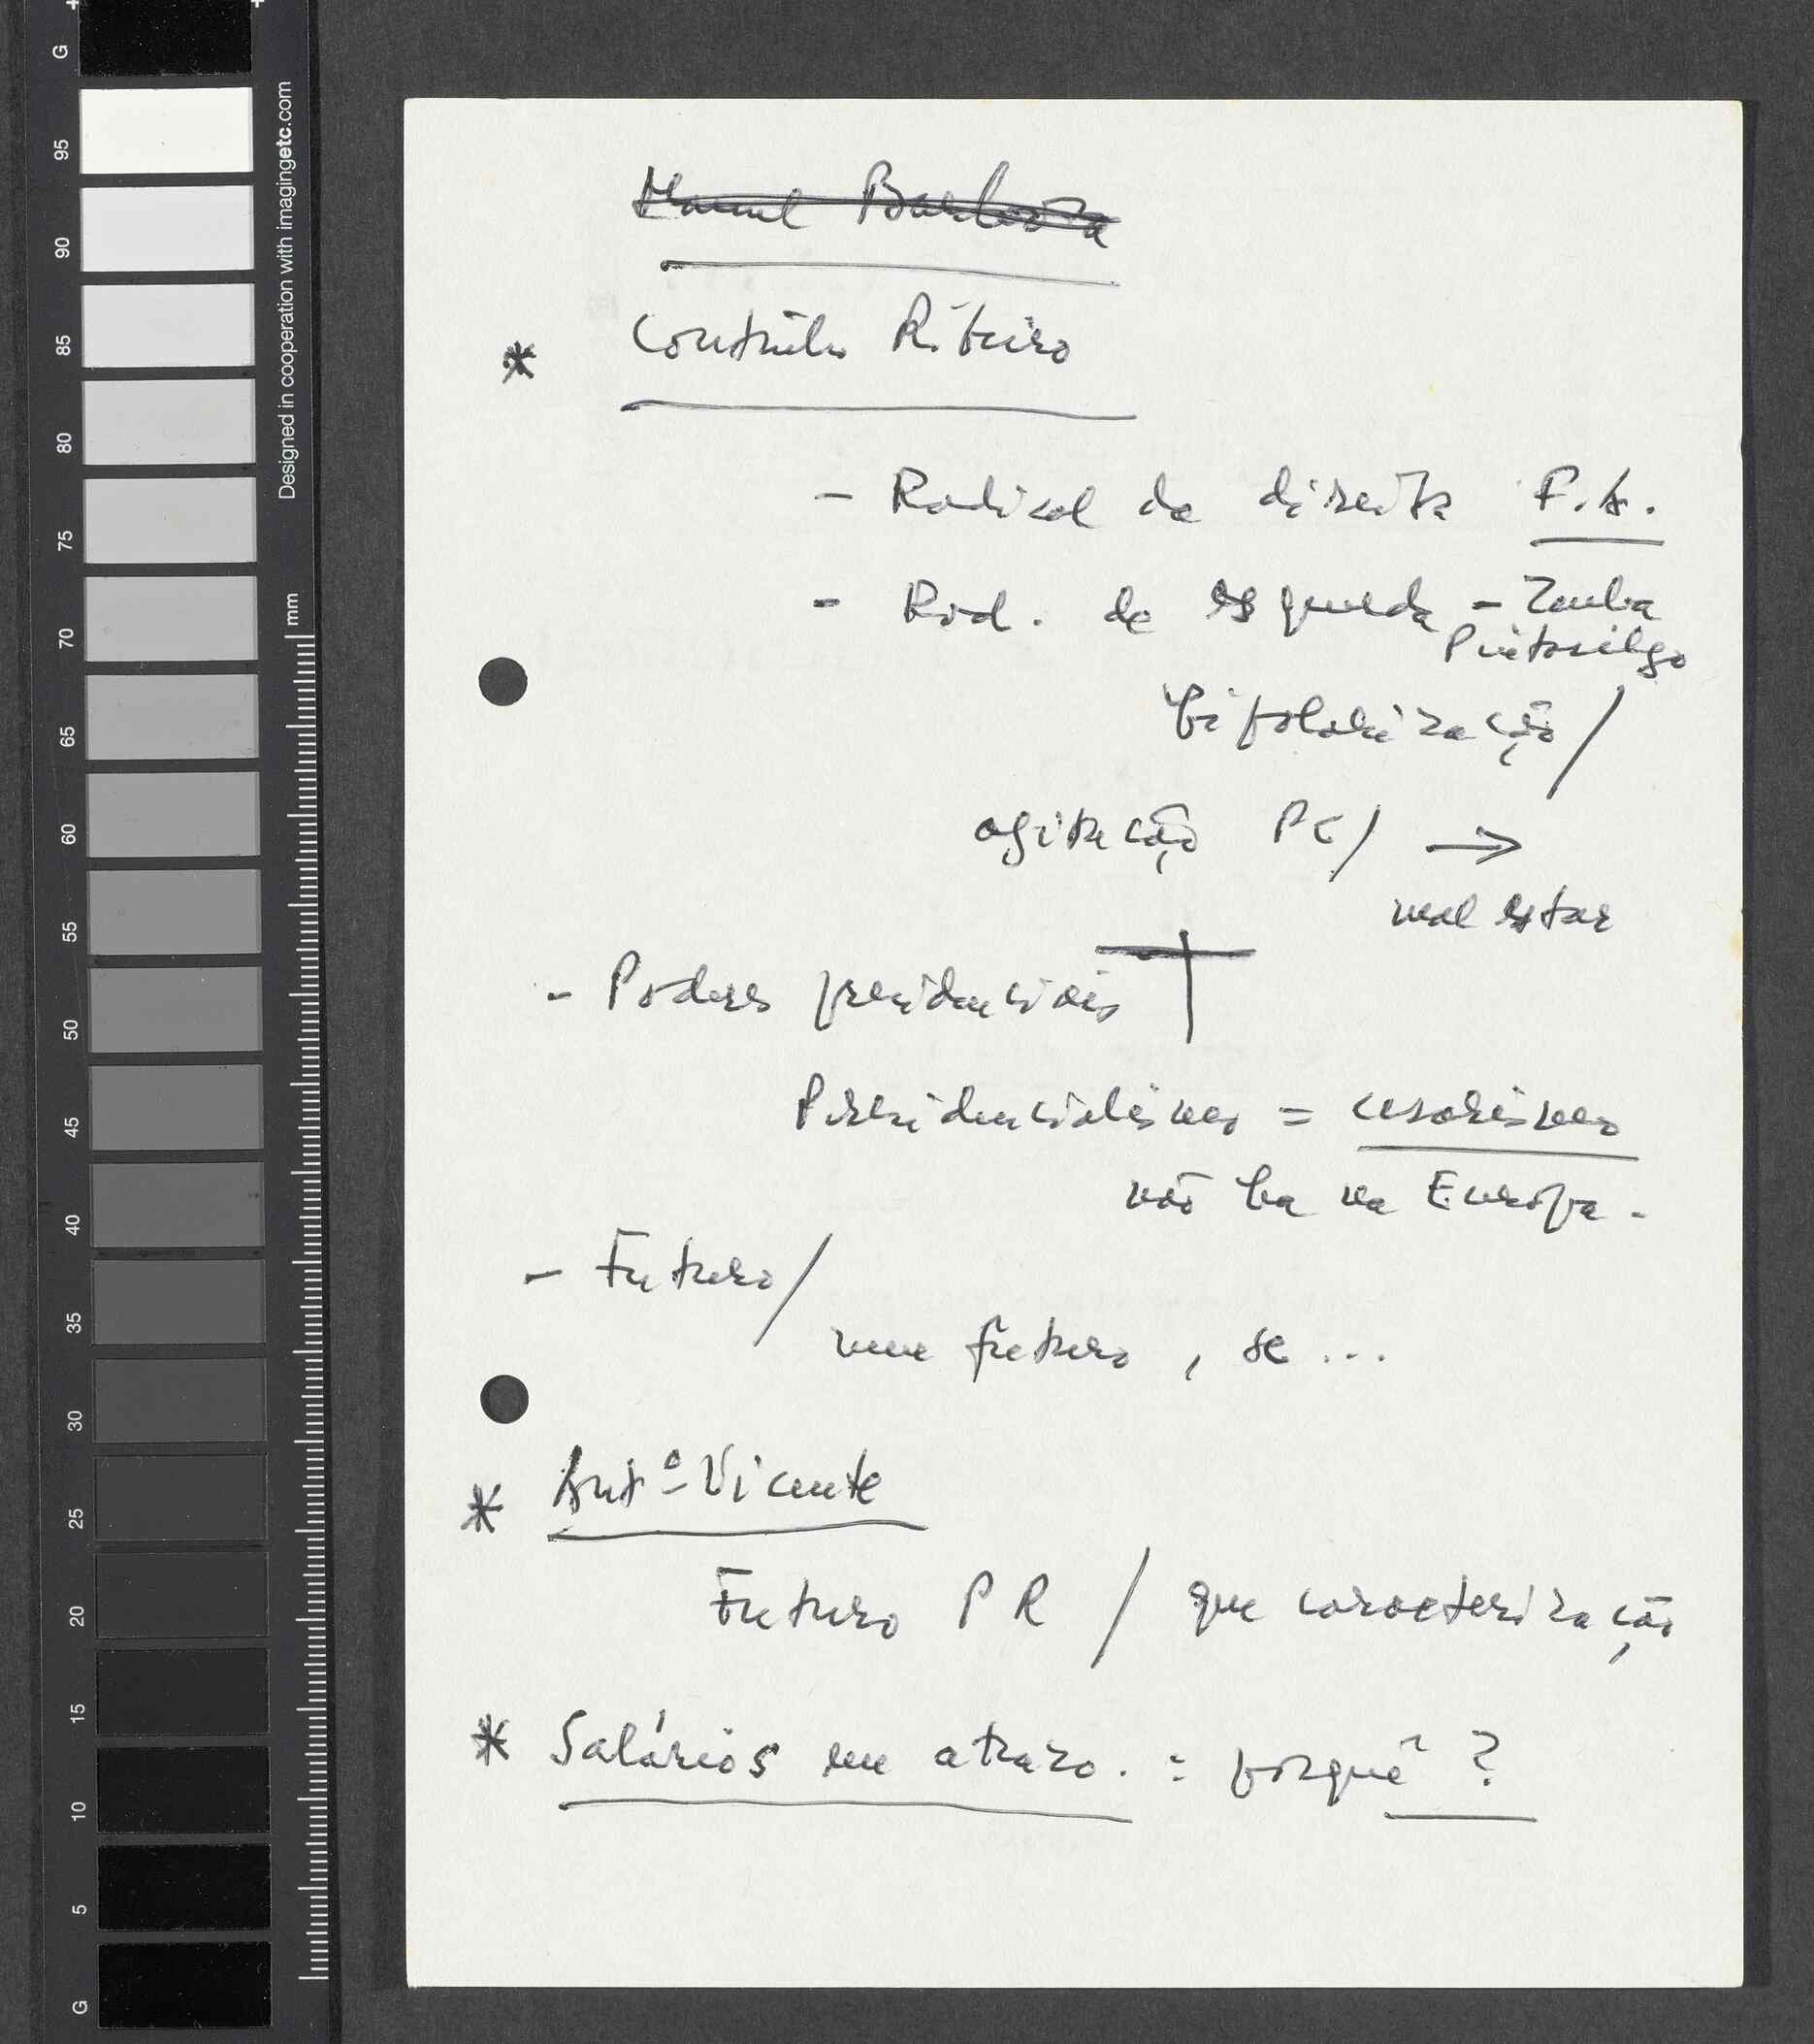 G
95
90
85
80
75
70
65
60
55
50
45
40
35
30
25
20
15
10
5
G
Designed in cooperation with imagingetc.com
mm
Manuel Barbosa
* Ribeiro
- Radical da direita F.A.
- Rad. de esquerda - Zenha
Pintasilgo
bipolarização /
agitação PC / →
mal estar
- Poderes presidenciais
Presidencialismo = cesarismo
não ha na Europa.
- Futuro /
um futuro, se ...
* Antº Vicente
Futuro PR / que caracterização
* Salários em atrazo. : porquê ?